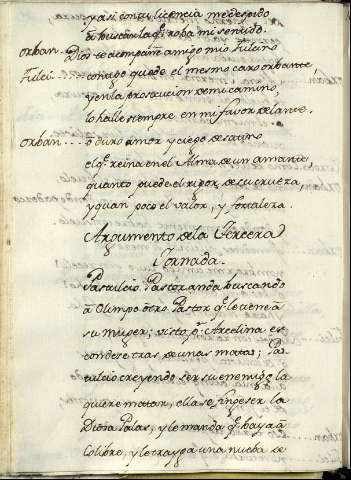 y así con tu licencia me despido
a buscar la q.e roba mi sentido.
Orban. Dios te acompañe amigo mio Fulcino
Fulci. contigo quede el mesmo caro orbante,
y en la prosecucion de mi camino,
lo halle siempre en mi favor delante.
Orban... o duro amor y ciego desatino
el q.e reina en el Alma de un amante,
quanto puede el rigor, de su crueza,
y quan poco el valor, y fortaleza.
Argumento de la Tercera
Jornada.
Pastulcio Pastor anda buscando
à Olimpo òtro Pastor q.e le tiene à
su muger; visto p.r Arcelina es-
condese tras de unas matas; Pas
tulcio creyendo ser su enemigo la
quiere matar, ella se finge ser la
Diosa Palas, y le manda q.e baya à
Colibre, y le trayga una nueba de